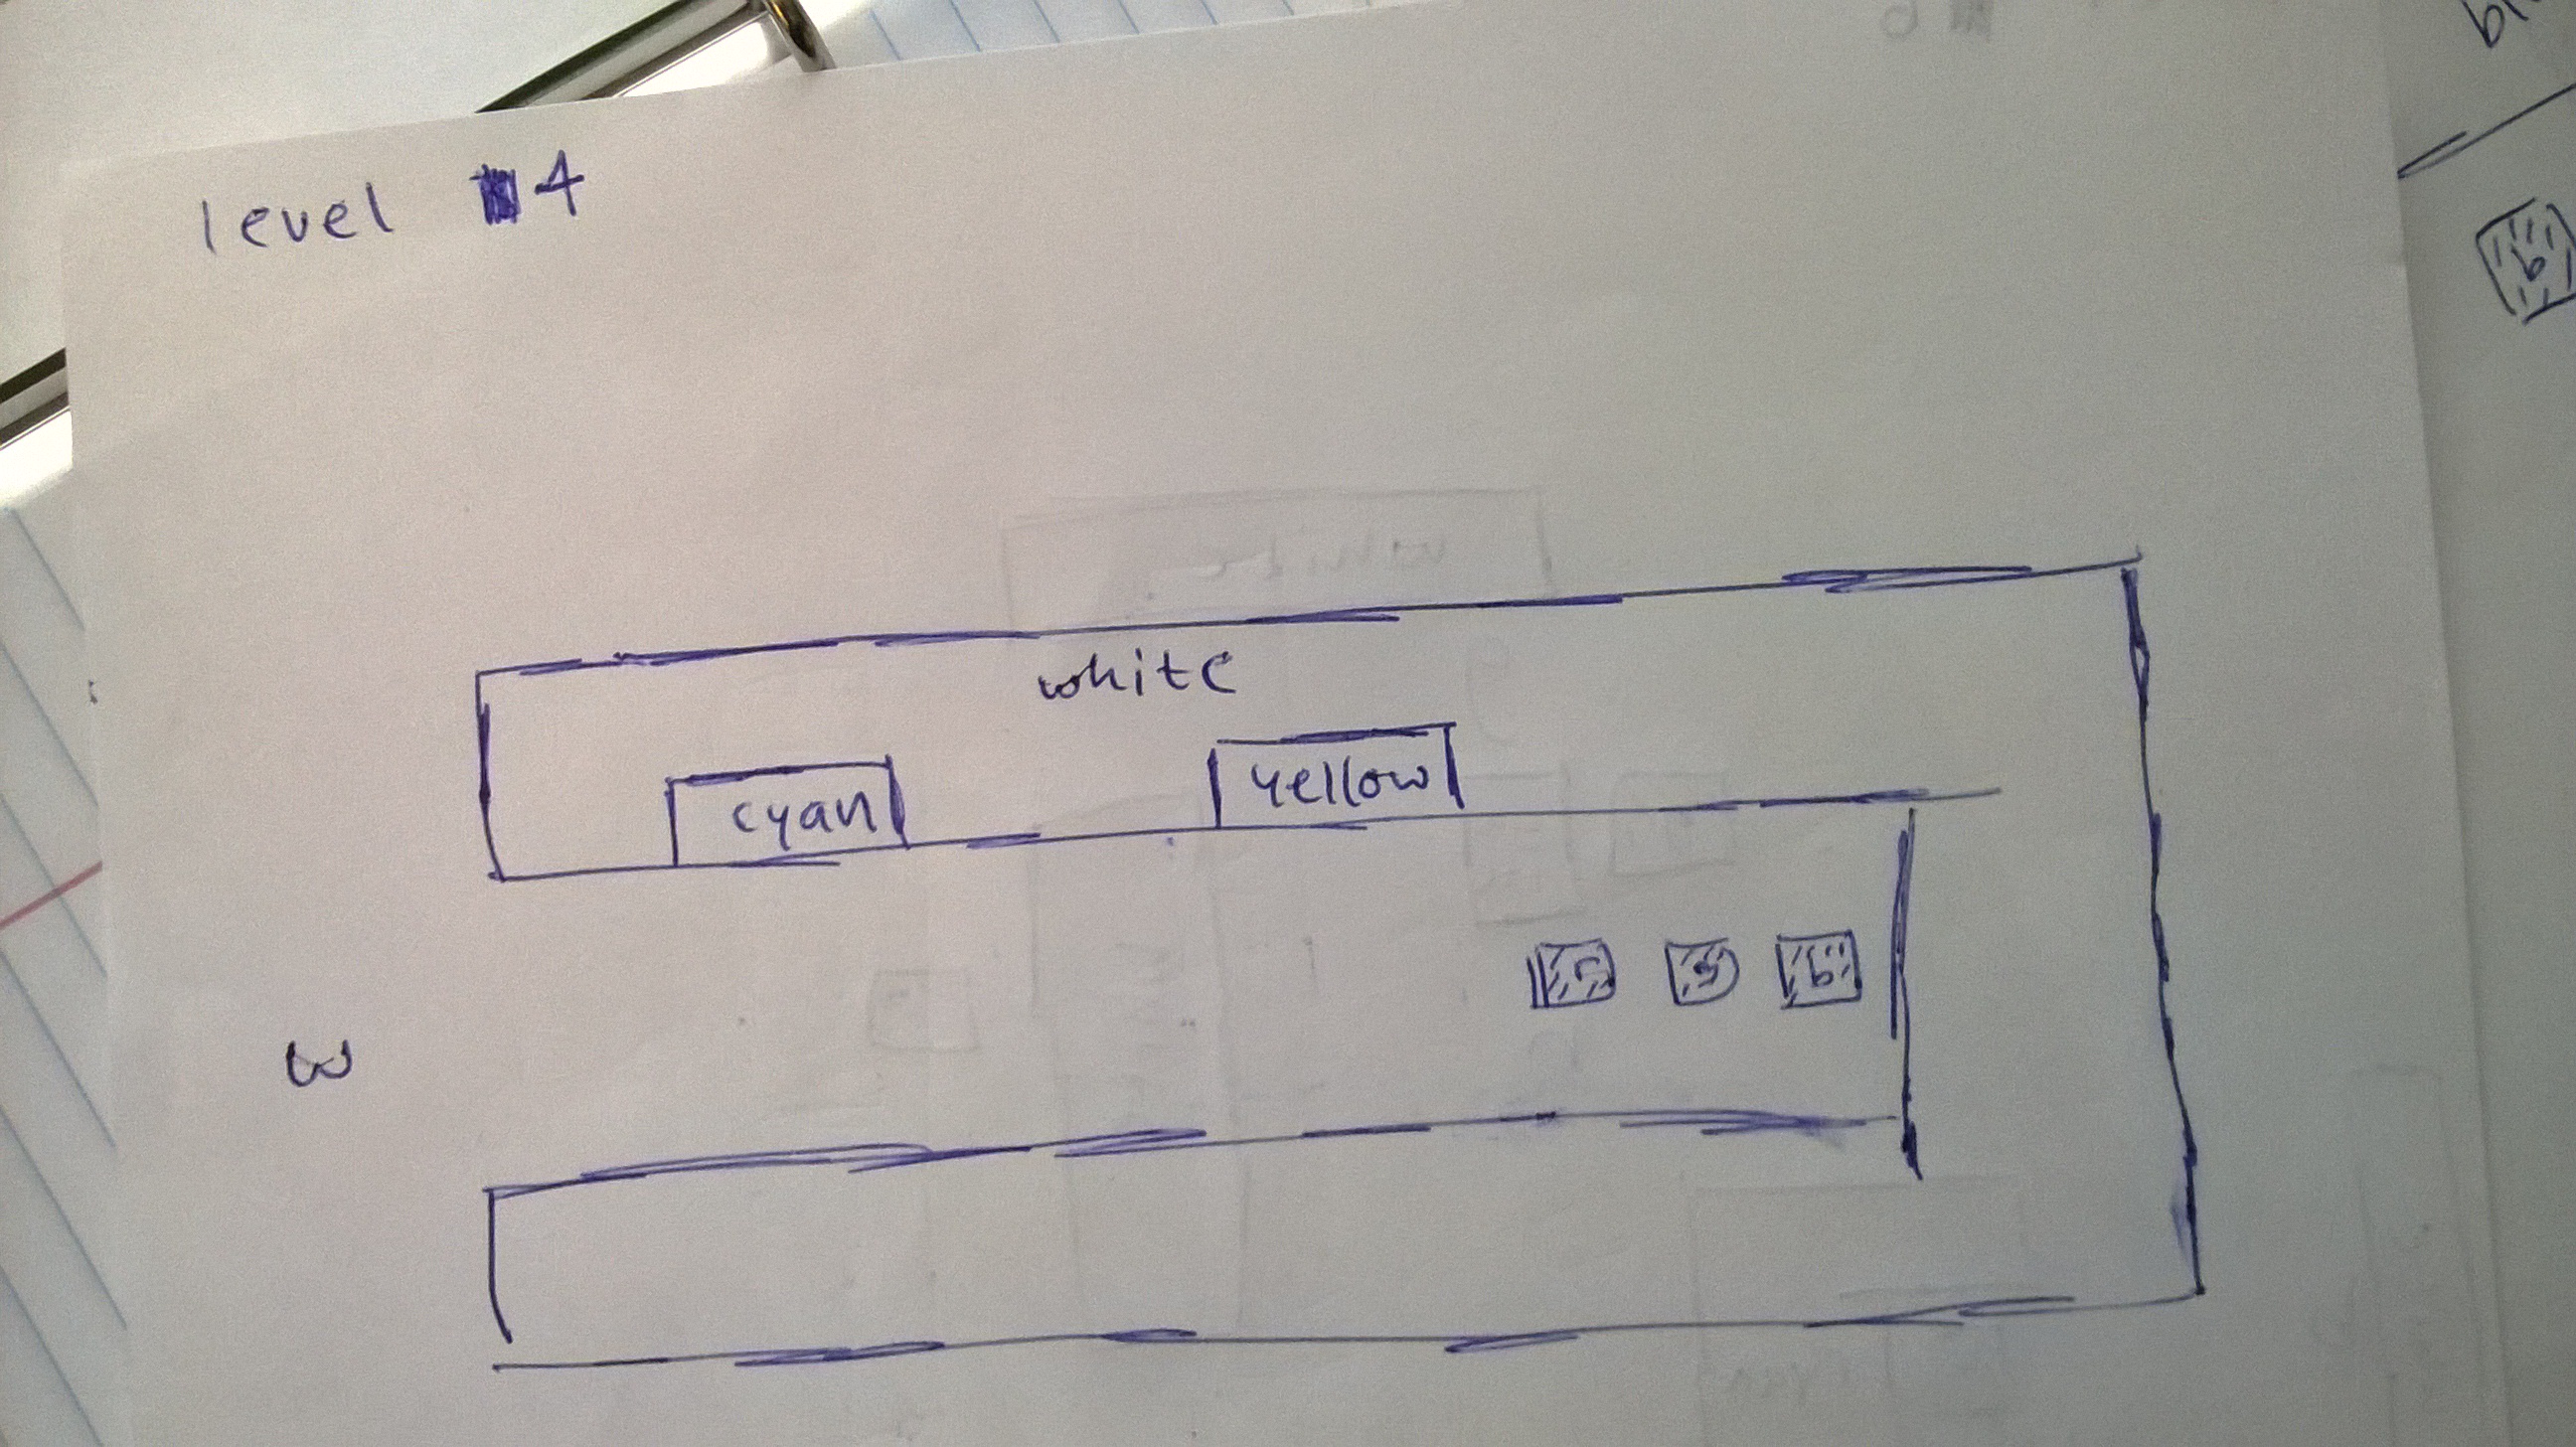 level 4
white
cyan
yellow
r g b
w
b